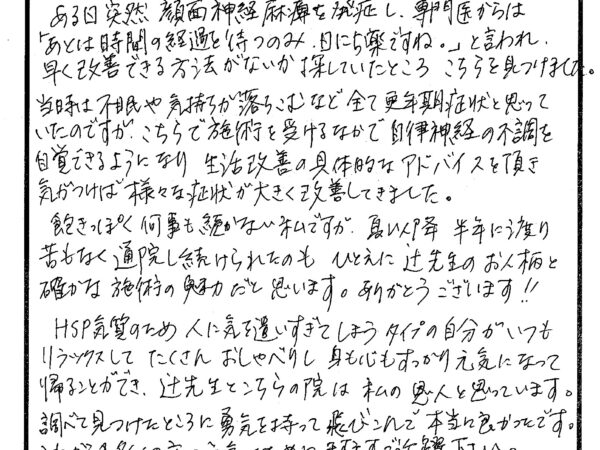 ある日突然 顔面神経麻痺を発症し、専門医からは
「あとは時間の経過を待つのみ、日にち薬ですね。」と言われ、
早く改善できる方法がないか探していたところ こちらを見つけました。
当時は不眠や気持ちが落ちこむなど全て更年期症状と思って
いたのですが、こちらで施術を受けるなかで自律神経の不調を
自覚できるようになり 生活改善の具体的なアドバイスを頂き
気がつけば様々な症状が大きく改善してきました。
飽きっぽく何事も続かない私ですが、夏以降 半年に渡り
苦もなく通院し続けられたのも ひとえに辻先生のお人柄と
確かな施術の魅力だと思います。ありがとうございます!!
HSP気質のため 人に気を遣いすぎてしまうタイプの自分がいつも
リラックスして たくさんおしゃべりし 身も心もすっかり元気になって
帰ることができ、辻先生とこちらの院は 私の恩人と思っています。
調べて見つけたところに勇気を持って飛びこんで本当に良かったです。